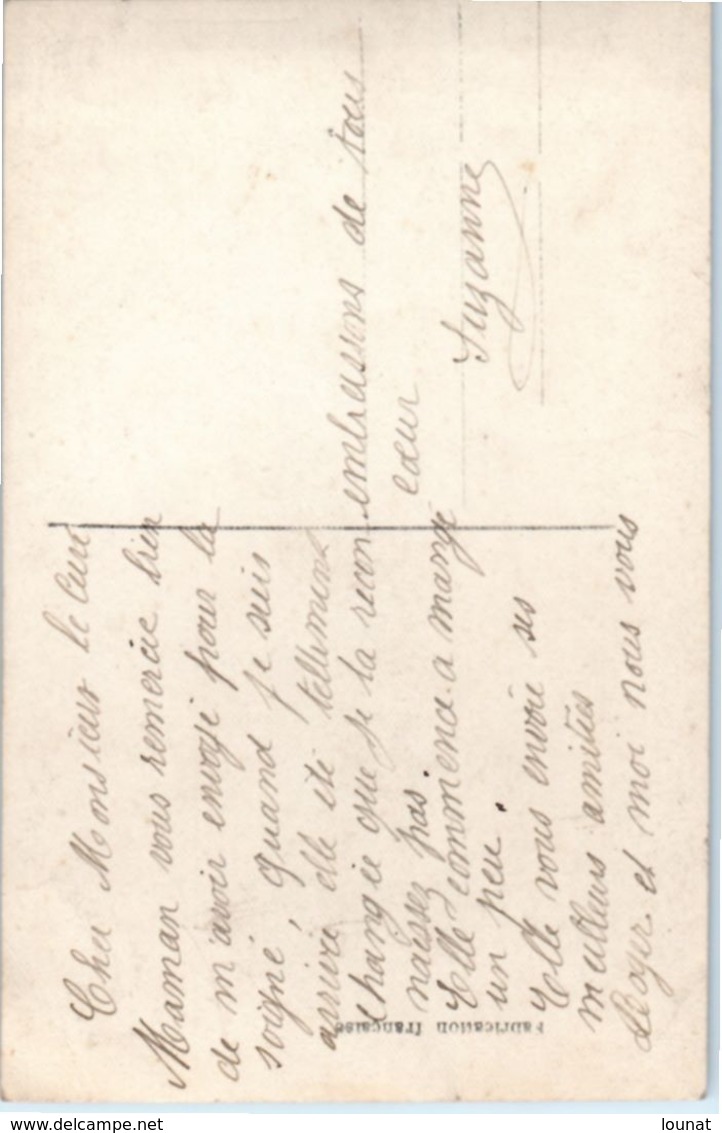 Cher Monsieur le Curé
Maman vous remercie bien
de m'avoir envoyé pour la
soigné, quand je suis
arrivé elle été tellement
changée que je la recon
naissez pas.
Elle commence a mangé
un peu.
Elle vous envoie ses
meilleurs amitiés
Roger et moi nous vous
embrassons de tous
cœur
Suzanne
Fabrication française
delcampe.net
lounat